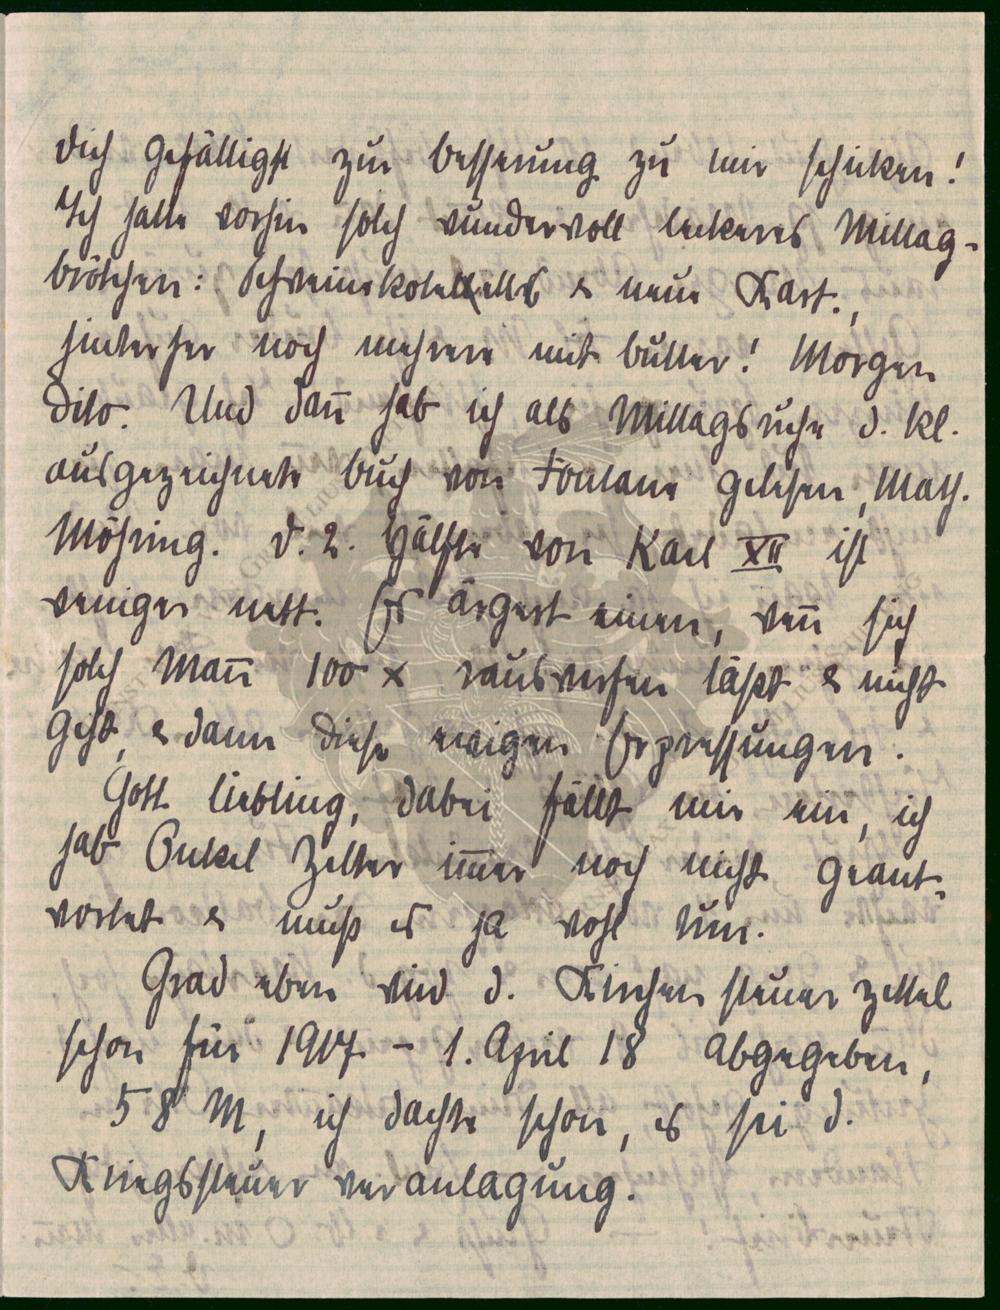 dich gefälligst zur Besserung zu mir schicken!
Ich hatte vorhin solch wundervoll leckeres Mittag-
brötchen: Schweinekotelletts & neue Kart.,
hinterher noch mehrere mit Butter! Morgen
dito. Und dan̄ hab ich als Mittagsruhe d. kl.
ausgezeichnete Buch von Fontane gelesen, Math.
Möhring. D. 2. Hälfte von Karl XII ist
weniger nett. Es ärgert einen, wen̄ sich
solch Man̄ 100 x rauswerfen läßt & nicht
geht, & dann diese ewigen Erpressungen.
Gott Liebling, dabei fällt mir ein, ich
hab Onkel Zelter im̄er noch nicht geant-
wortet & muß es ja wohl tun.
Grad eben wird d. Kirchensteuerzettel
schon für 1917 - 1. April 18 abgegeben,
58 M, ich dachte schon, es sei d.
Kriegssteuerveranlagung.